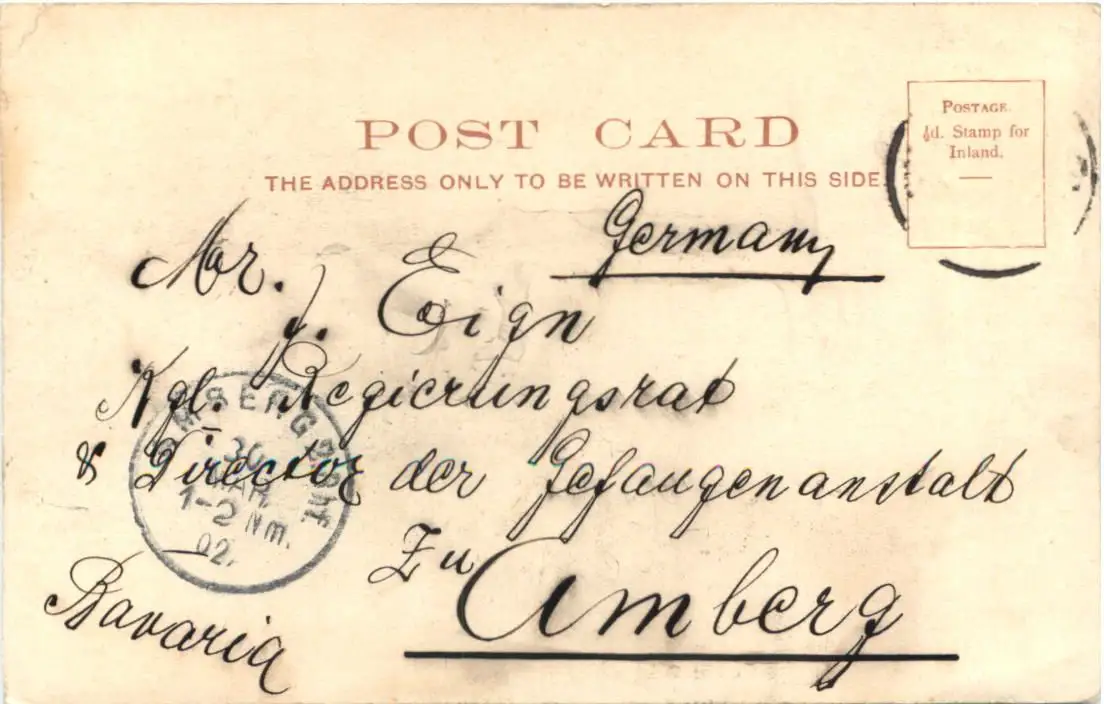 POST CARD
POSTAGE.
½d. Stamp for
Inland.
THE ADDRESS ONLY TO BE WRITTEN ON THIS SIDE.
Germany
Mr. J. Eign
Kgl. Regierungsrat
& Director der Gefangenanstalt
Zu Amberg
Bavaria
AMBERG BHF.
30
MAR.
1-2 Nm.
02.